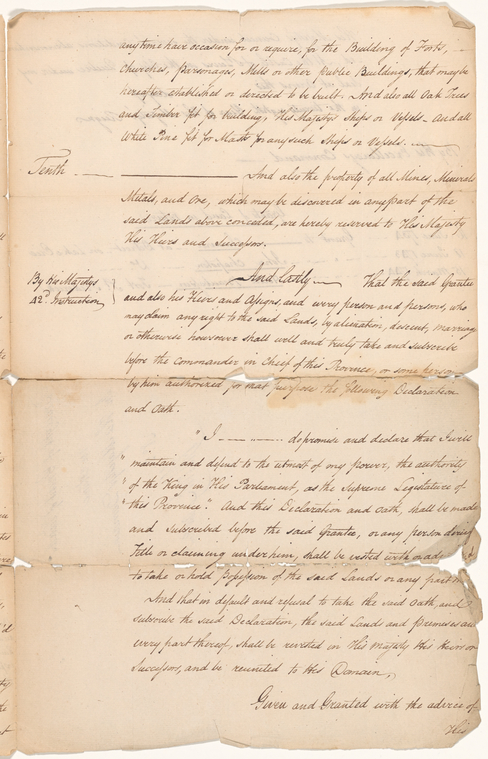 any time have occasion for or require, for the Building of Forts,
Churches, Parsonages, Mills or other public Buildings, that may be
hereafter established or directed to be built. And also all Oak Trees
and Timber fit for building, His Majestys Ships or Vessels. And all
White Pine fit for Masts for any such Ships or Vessels.
Tenth And also the property of all Mines, Minerals
Metals, and Ore, which may be discovered in any part of the
said Lands above conceded, are hereby reserved to His Majesty
His Heirs and Successors.
And lastly That the said Grantee
By His Majestys
42d. Instruction
and also his Heirs and Assigns, and every person and persons, who
may claim any right to the said Lands, by alienation, descent, marriage
or otherwise howsoever shall well and truly take and subscribe
before the Commander in Chief of this Province, or some person
by him authorized for that purpose the following Declaration
and Oath.
"I do promise and declare that I will
" maintain and defend to the utmost of my power, the authority
" of the King in His Parliament, as the Supreme Legislature of
" this Province. And this Declaration and Oath, shall be made
and Subscribed before the said Grantee, or any person
Title or claiming under him, shall be vested with
to take or hold Possession of the said Lands or any part
And that in default and refusal to take the said Oath, and
subscribe the said Declaration, the said Land and premises and
every part thereof, shall be revested in His Majesty His Heirs or
Successors, and be reunited to His Domain,
Given and Granted with the advice of
His